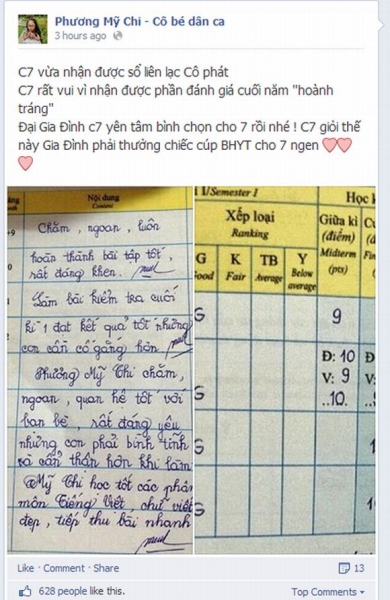 Phương Mỹ Chi - Cô bé dân ca
3 hours ago
C7 vừa nhận được sổ liên lạc Cô phát
C7 rất vui vì nhận được phần đánh giá cuối năm "hoành
tráng"
Đại Gia Đình c7 yên tâm bình chọn cho 7 rồi nhé ! C7 giỏi thế
này Gia Đình phải thưởng chiếc cúp BHYT cho 7 ngen
Nội dung
Content
Chăm, ngoan, luôn
hoàn thành bài tập tốt,
rất đáng khen.
Làm bài kiểm tra cuối
kì 1 đạt kết quả tốt nhưng
con cần cố gắng hơn
Phương Mỹ Chi chăm,
ngoan, quan hệ tốt với
bạn bè, rất đáng yêu
nhưng con phải bình tĩnh
và cẩn thận hơn khi làm
Mỹ Chi học tốt các phân
môn Tiếng Việt, chữ viết
đẹp, tiếp thu bài nhanh
I/Semester I
Học k
Xếp loại
Ranking
Giữa kì
(điểm)
Midterm
(pts)
G
Good
K
Fair
TB
Average
Y
Below
average
G
9
Đ: 10
V: 9
..10.
G
G
G
Like · Comment · Share
13
628 people like this.
Top Comments